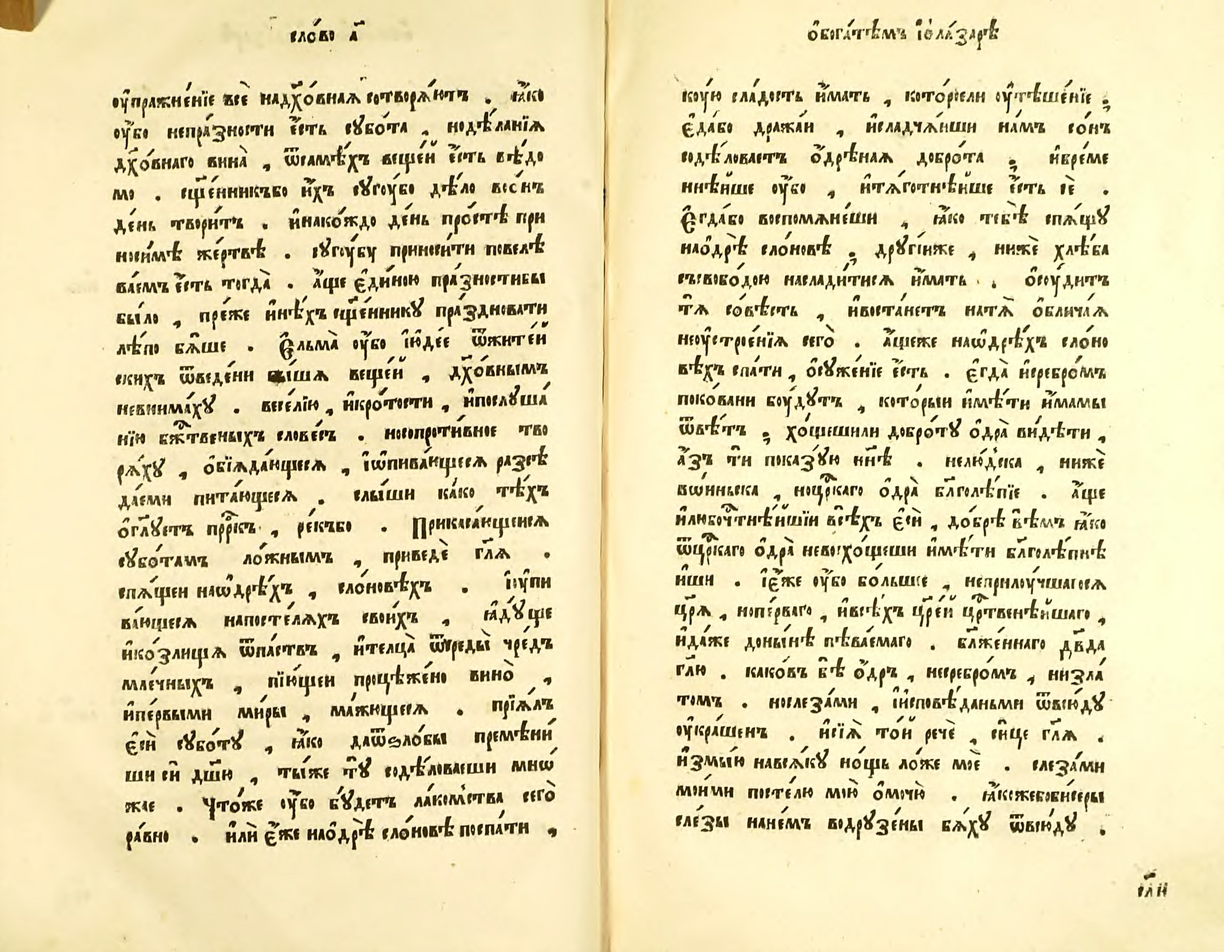 сло́во а҃
оу҆пражне́нїе всѐ надхо́внаѧ сотворѧ́ютъ . ꙗ҆́ко
оу҆́бо непра́зности є҆́сть сꙋбо́та , нодѣ́ланїѧ
дх҃о́внаго вина̀ , ѿсамѣ́хъ веще́й є҆́сть вѣ́до
мо . сщ҃е́нникъбо и҆́хъ сꙋгоу́бо дѣ́ло всѝнъ
де́нь твори́тъ . и҆нако́ждо де́нь про́стѣ при
носи́мѣ же́ртвѣ . сꙋгоу́бꙋ принести́ повелѣ
ва́емъ є҆́сть тогда̀ . а҆́ще є҆ди́ною пра́зностибы
бы́ло , пре́же и҆нѣ́хъ сщ҃е́нникꙋ пра́здновати
лѣ́по бѧ́ше . Є҆льма̀ оу҆́бо і҆ꙋде́е ѿжите́й
скихъ ѿведе́ни бы́шѧ веще́й , дх҃о́внымъ
невнима́хꙋ . весе́лїю , и҆кро́тости , и҆послꙋша́
нїю бж҃твеныхъ слове́съ . носопроти́вное тво
рѧ́хꙋ , о҆б̾ꙗда́ющесѧ , і҆ѡ҆пива́ющесѧ ра́зсѣ
да́еми пита́ющесѧ . слы́ши ка́ко тѣ́хъ
о҆глꙋ́етъ прⷪ҇ркъ , ре́къбо . Прикаса́ющеисѧ
сꙋбо́тамъ ло́жнымъ , приведѐ гл҃ѧ .
спѧ́щеи наѡ҆дрѣ́хъ , сло́новѣхъ . і҆оу҆пи
ва́ющесѧ напосте́лѧхъ свои́хъ , ꙗ҆дꙋ́ще
и҆ко́злищѧ ѿпа́ствъ , и҆телца̀ ѿсреды̀ чре́дъ
мле́чныхъ , пїю́щеи процѣ́жено вино̀ ,
и҆пе́рвыми ми́ры , ма́жꙋщесѧ . прїѧ́лъ
є҆сѝ сꙋбо́тꙋ , ꙗ҆́ко даѿѕло́бы премѣни́
ши сѝ дш҃ю , ты́же тꙋ̀ содѣ́ловаеши мнѡ
жае . Что́же оу҆́бо бꙋ́детъ ла́комства сего̀
ра́вно . и҆лѝ є҆́же нао҆дрѣ̀ сло́новѣ поспа́ти ,
о҆бога́тѣмъ і҆ѡла́зарѣ
коую сла́дость и҆́мать , кото́рꙋели оу҆тѣше́нїе ;
є҆да́бо дража́и , и҆сладча́иши на́мъ со́нъ
содѣ́ловаетъ о҆дрѣ́наѧ добро́та ; и҆бре́ме
ннѣ́йше оу҆́бо , и҆тѧготнѣ́йше є҆́сть сѐ .
Є҆гда́бо воспомѧне́ши , ꙗ҆́ко тебѣ̀ спѧ́щꙋ
нао҆дрѣ̀ сло́новѣ ; дрꙋгі́иже , нижѐ хлѣ́ба
съсвобо́дою наслади́тисѧ и҆́мать . о҆соу́дитъ
тѧ̀ со́вѣсть , и҆воста́нетъ натѧ̀ о҆блича́ѧ
неоу҆строе́нїѧ сего̀ . а҆́щеже наѡ҆дрѣ́хъ сло́но
вѣхъ спа́ти , о҆сꙋже́нїе є҆́сть . є҆гда̀ и҆сребро́мъ
поко́вани боу́дꙋтъ , кото́рыи и҆мѣ́ти и҆́мамы
ѿвѣ́тъ ; хо́щешили добро́тꙋ о҆дра̀ ви́дѣти ,
а҆́зъ тѝ показꙋ́ю нн҃ѣ . нелю́дска , нижѐ
вѡ́иньска , ноцр҃каго о҆дра̀ бл҃голѣ́пїе . а҆́ще
и҆либоч҃тнѣ́йшїи всѣ́хъ є҆сѝ , до́брѣ вѣ́мъ ꙗ҆́ко
ѿцр҃каго о҆дра̀ невосхо́щеши и҆мѣ́ти бл҃голѣ́пнѣ
иши . і҆є҆́же оу҆́бо бо́льше , неприлоу́чшагосѧ
цр҃ѧ̀ , нопе́рваго , и҆всѣ́хъ цр҃е́й цр҃твенѣ́йшаго ,
и҆да́же доны́нѣ пѣва́емаго . бл҃же́ннаго дв҃да
гл҃ю . како́въ бѣ̀ о҆́дръ , несребро́мъ , низла́
томъ . нослеза́ми , і҆исповѣ́даньми ѿвсю́дꙋ
оу҆кра́шенъ . и҆сїѧ̀ то́й речѐ , си́це гл҃ѧ .
и҆змы́ю навсѧ́кꙋ но́щь ло́же моѐ . слеза́ми
мои́ми посте́лю мою̀ о҆мочю̀ . ꙗ҆́кожѐбобисеры
сле́зы нане́мъ водрꙋзе́ны бѧ́хꙋ ѿвсю́дꙋ .